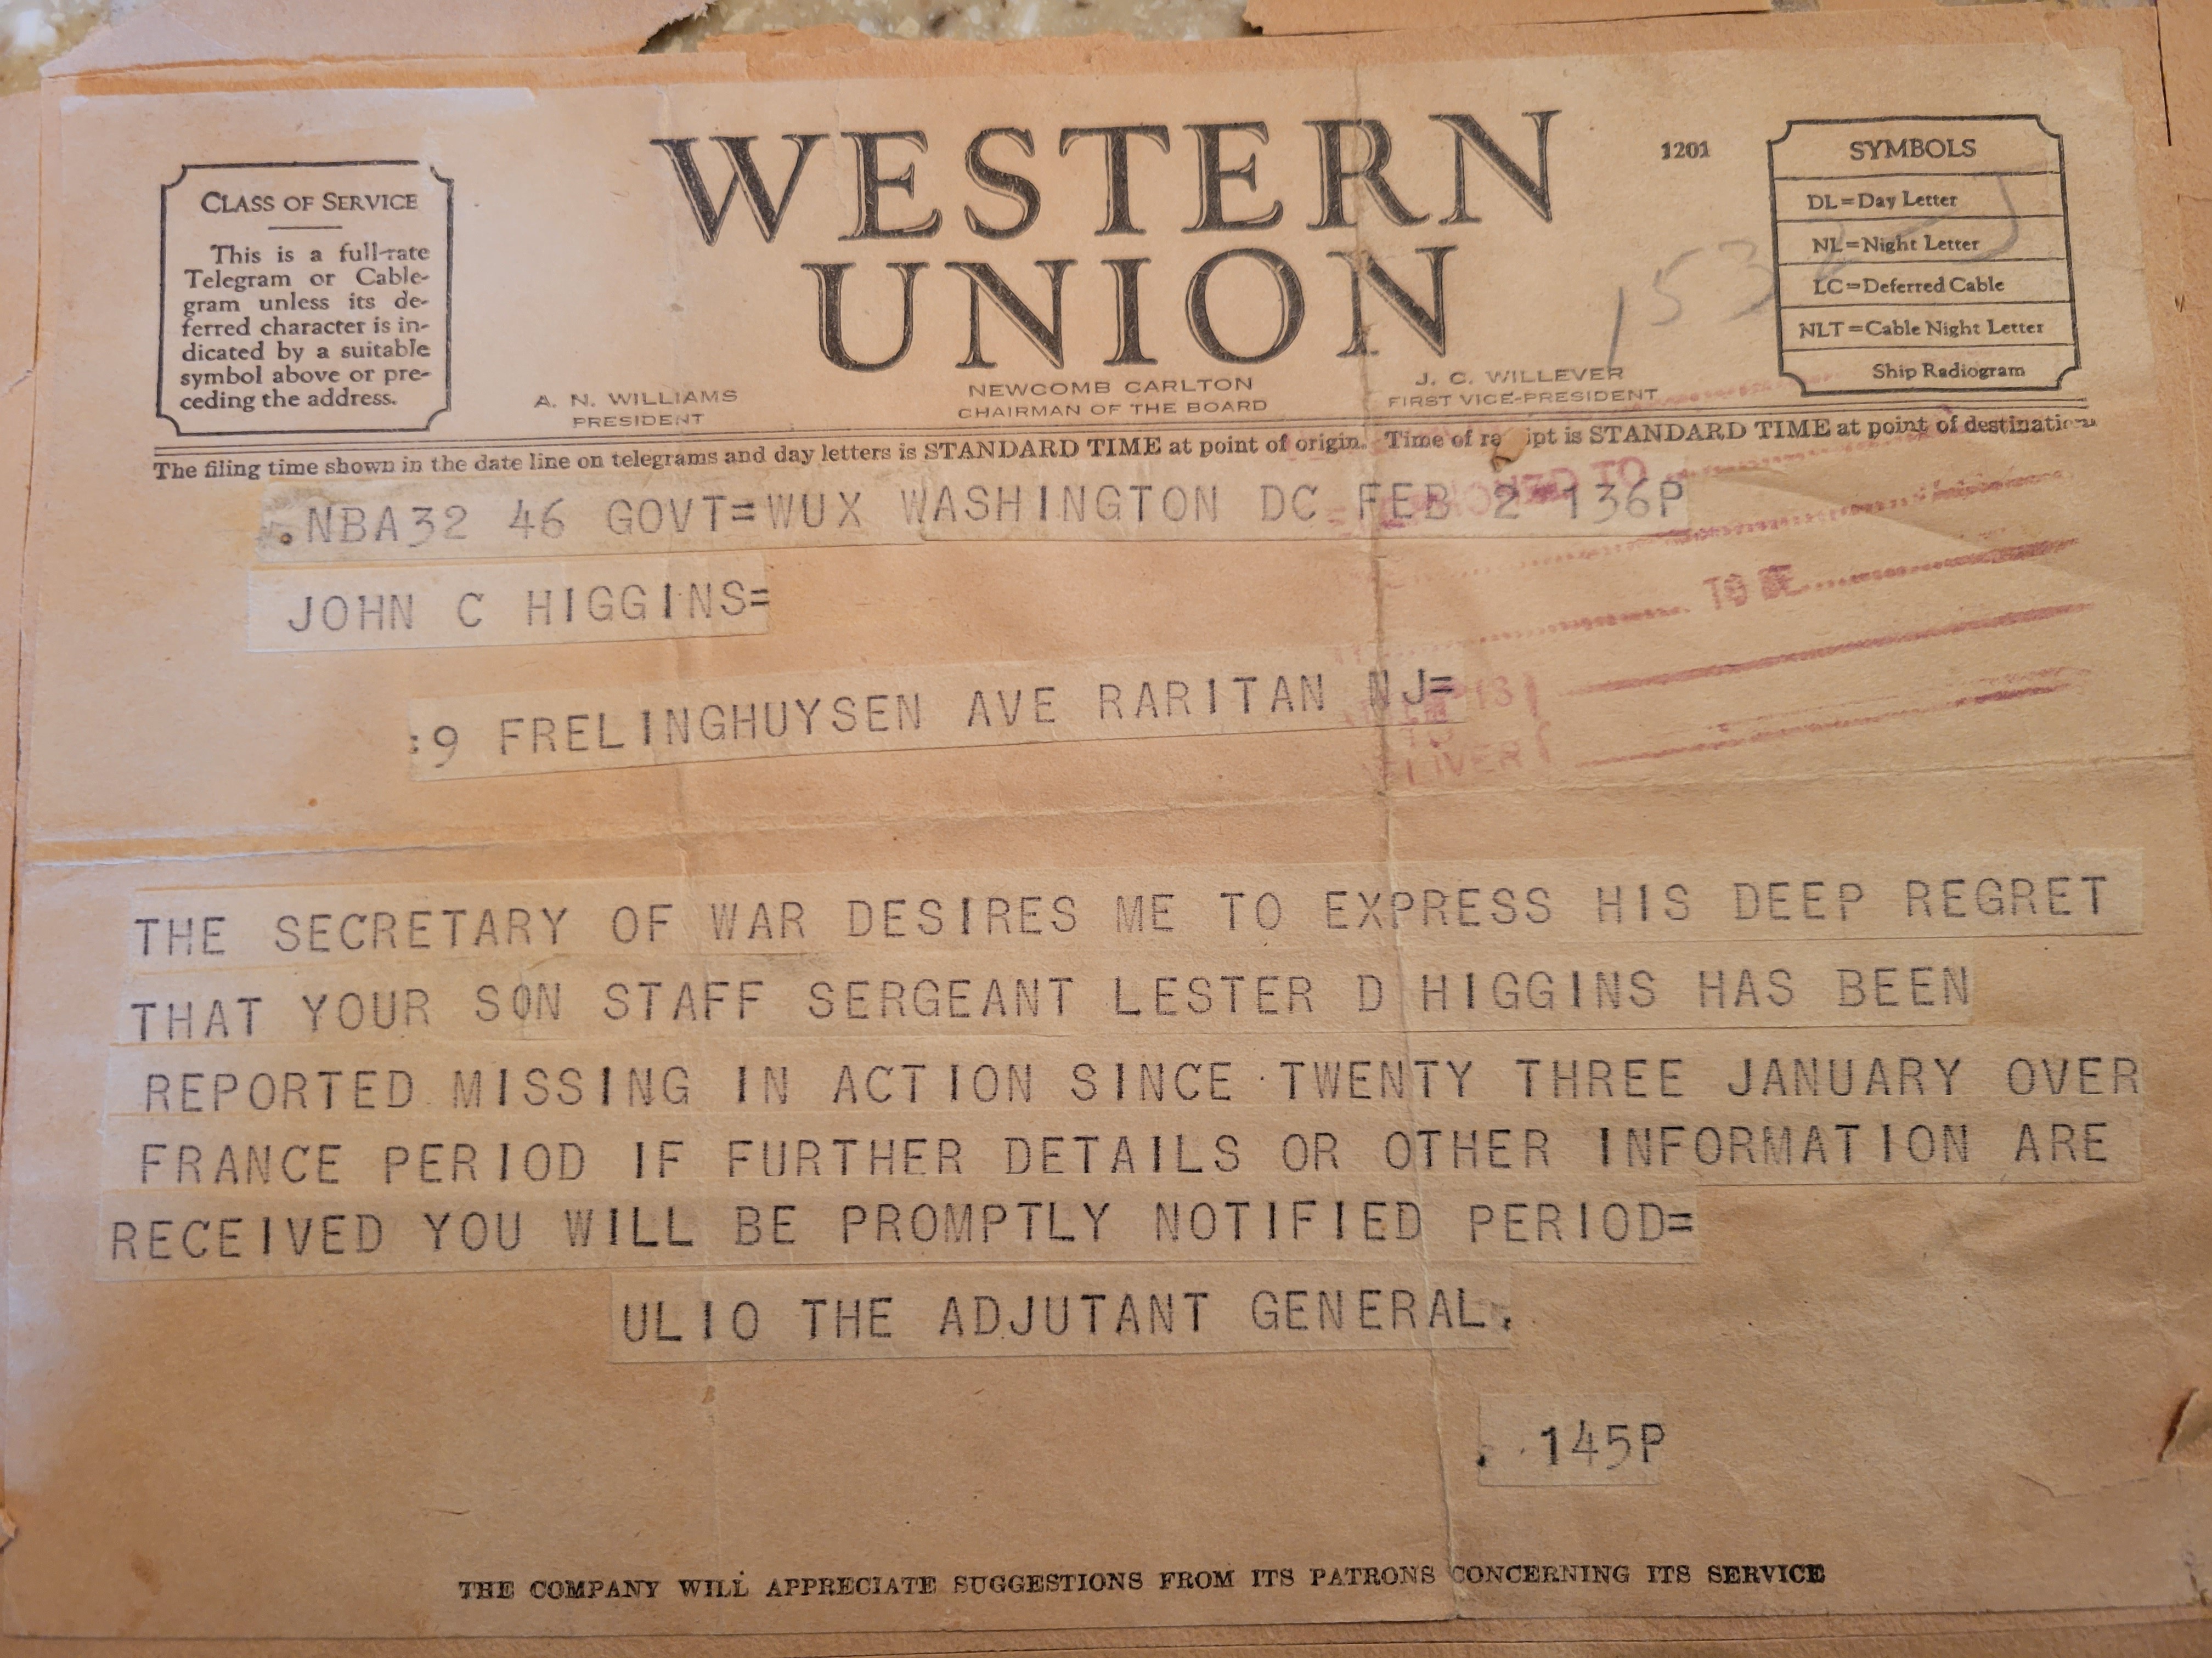 WESTERN
UNION
1201
CLASS OF SERVICE
This is a full-rate
Telegram or Cable-
gram unless its de-
ferred character is in-
dicated by a suitable
symbol above or pre-
ceding the address.
SYMBOLS
DL=Day Letter
NL=Night Letter
LC=Deferred Cable
NLT=Cable Night Letter
Ship Radiogram
A. N. WILLIAMS
PRESIDENT
NEWCOMB CARLTON
CHAIRMAN OF THE BOARD
J. C. WILLEVER
FIRST VICE-PRESIDENT
The filing time shown in the date line on telegrams and day letters is STANDARD TIME at point of origin. Time of re ipt is STANDARD TIME at point of destination
.NBA32 46 GOVT=WUX WASHINGTON DC FEB 2 136P
JOHN C HIGGINS=
:9 FRELINGHUYSEN AVE RARITAN NJ=
TO
TO BE
TO
THE SECRETARY OF WAR DESIRES ME TO EXPRESS HIS DEEP REGRET
THAT YOUR SON STAFF SERGEANT LESTER D HIGGINS HAS BEEN
REPORTED MISSING IN ACTION SINCE TWENTY THREE JANUARY OVER
FRANCE PERIOD IF FURTHER DETAILS OR OTHER INFORMATION ARE
RECEIVED YOU WILL BE PROMPTLY NOTIFIED PERIOD=
ULIO THE ADJUTANT GENERAL.
. 145P
THE COMPANY WILL APPRECIATE SUGGESTIONS FROM ITS PATRONS CONCERNING ITS SERVICE